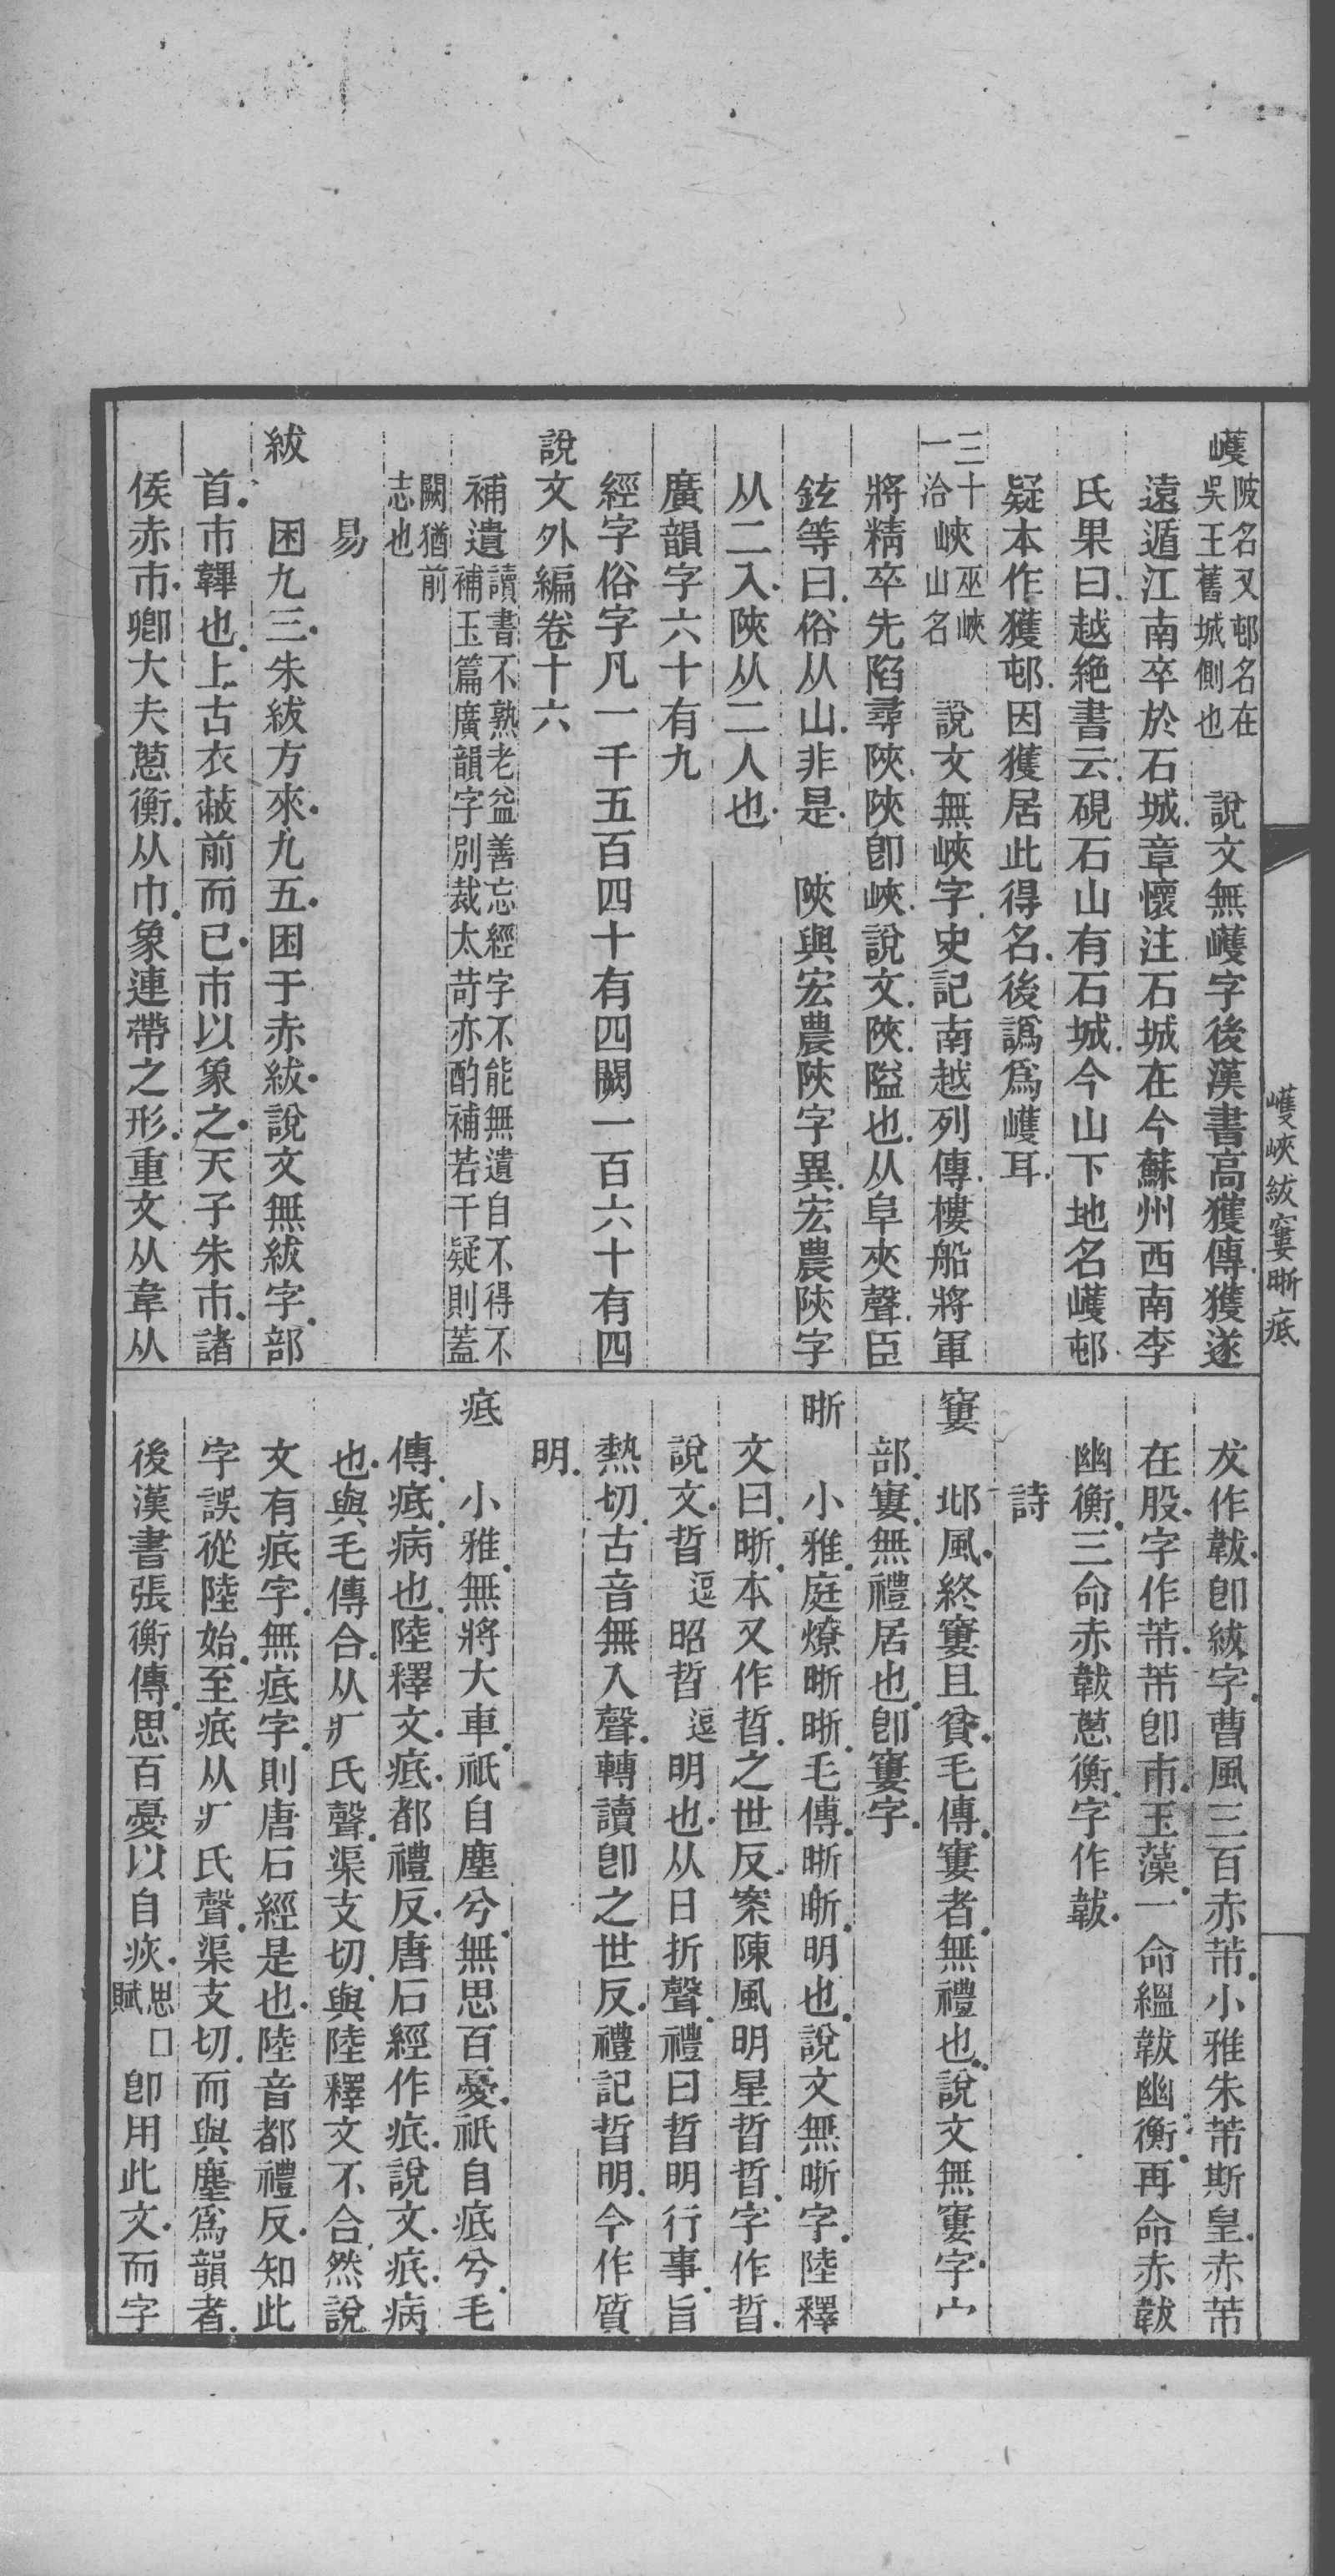 嶐峽紱窶晣疷
嶐陂名又邨名在吳王舊城側也　說文無嶐字後漢書高獲傳獲遂
遠遁江南卒於石城章懷注石城在今蘇州西南李
氏果曰越絶書云硯石山有石城今山下地名嶐邨
疑本作獲邨因獲居此得名後譌爲嶐耳
三十一洽峽巫峽山名　說文無峽字史記南越列傳樓船將軍
將精卒先陷尋陝陝卽峽說文陝隘也从𨸏夾聲臣
鉉等曰俗从山非是　陝與宏農陜字異宏農陜字
从二入陝从二人也
廣韻字六十有九
經字俗字凡一千五百四十有四闕一百六十有四
說文外編卷十六
補遺讀書不熟老益善忘經字不能無遺自不得不補玉篇廣韻字別裁太苛亦酌補若干疑則蓋
闕猶前志也
易
紱　困九三朱紱方來九五困于赤紱說文無紱字部
首巿韠也上古衣蔽前而已巿以象之天子朱巿諸
侯赤巿卿大夫蔥衡从巾象連帶之形重文从韋从
犮作韍卽紱字曹風三百赤芾小雅朱芾斯皇赤芾
在股字作芾芾卽巿玉藻一命縕韍幽衡再命赤韍
幽衡三命赤韍蔥衡字作韍
詩
窶　邶風終窶且貧毛傳窶者無禮也說文無窶字宀
部寠無禮居也卽窶字
晣　小雅庭燎晣晣毛傳晣晣明也說文無晣字陸釋
文曰晣本又作晢之世反案陳風明星晢晢字作晢
說文晢逗昭晢逗明也从日折聲禮曰晢明行事旨
熱切古音無入聲轉讀卽之世反禮記晢明今作質
明
疷　小雅無將大車祇自塵兮無思百憂祇自疷兮毛
傳疷病也陸釋文疷都禮反唐石經作疧說文疧病
也與毛傳合从疒氏聲渠支切與陸釋文不合然說
文有疧字無疷字則唐石經是也陸音都禮反知此
字誤從陸始至疧从疒氏聲渠支切而與塵爲韻者
後漢書張衡傳思百憂以自疢思□賦卽用此文而字